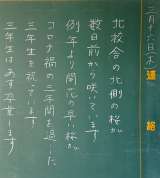 三月十六日(木)
連絡
北校舎の北側の桜が
数日前から咲いています
例年より開花の早い桜が
コロナ禍の三年間を過した
三年生を祝っています
三年生はあす卒業します